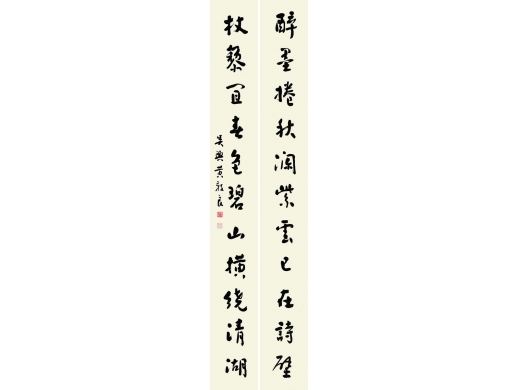 醉墨捲秋瀾紫雲已在詩壁
杖藜問春色碧山横繞清湖
吴興黄良